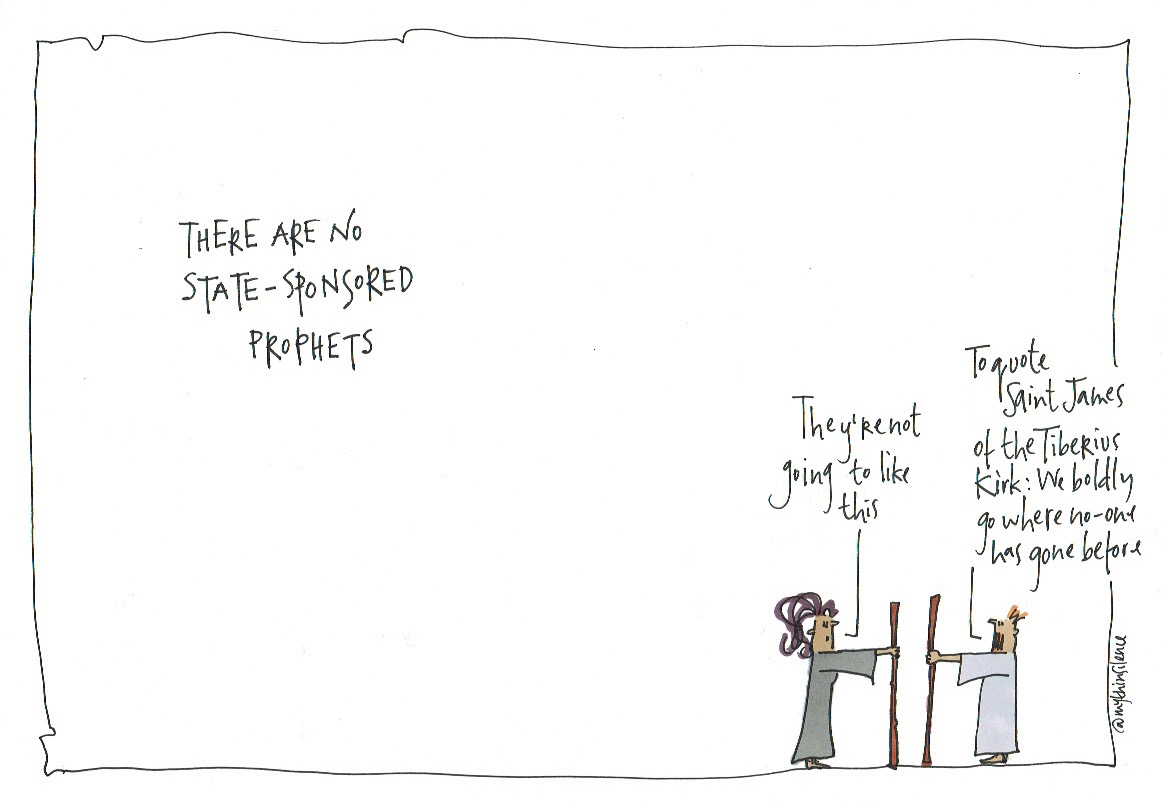 THERE ARE NO
STATE-SPONSORED
PROPHETS
They're not
going to like
this
To quote
Saint James
of the Tiberius
Kirk: We boldly
go where no-one
has gone before
@mythinsilence